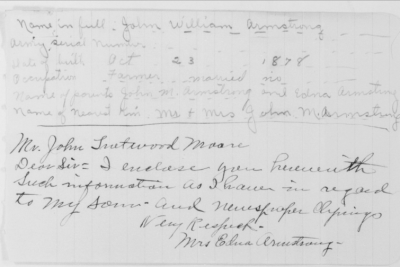 Name in full - John William Armstrong
Army serial number
Date of birth Oct 23 1878
Occupation Farmer married no
Name of parents John M. Armstrong and Edna Armstrong
Name of nearest kin Mr + Mrs John M. Armstrong
Mr. John Trotwood Moore
Dear Sir - I enclose you herewith
Such information as I have in regard
to My Son - and Newspaper Clipings
Very Respect -
Mrs Edna Armstrong -